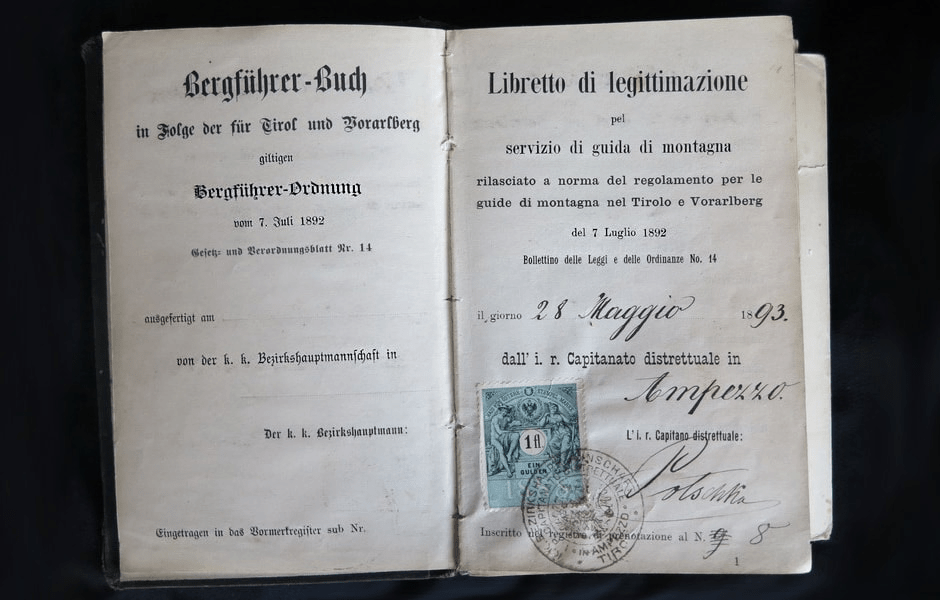 Bergführer-Buch
in Folge der für Tirol und Vorarlberg
giltigen
Bergführer-Ordnung
vom 7. Juli 1892
Gesetz- und Verordnungsblatt Nr. 14
ausgefertigt am
von der k. k. Bezirkshauptmannschaft in
Der k. k. Bezirkshauptmann:
Eingetragen in das Vormerkregister sub Nr.
Libretto di legittimazione
pel
servizio di guida di montagna
rilasciato a norma del regolamento per le
guide di montagna nel Tirolo e Vorarlberg
del 7 Luglio 1892
Bollettino delle Leggi e delle Ordinanze No. 14
il giorno 28 Maggio 1893.
dall' i. r. Capitanato distrettuale in
Ampezzo.
L' i. r. Capitano distrettuale:
Potschka
1 fl
EIN
GULDEN
IN AMPEZZO
TIROL
Inscritto nel registro di prenotazione al N. 8
1